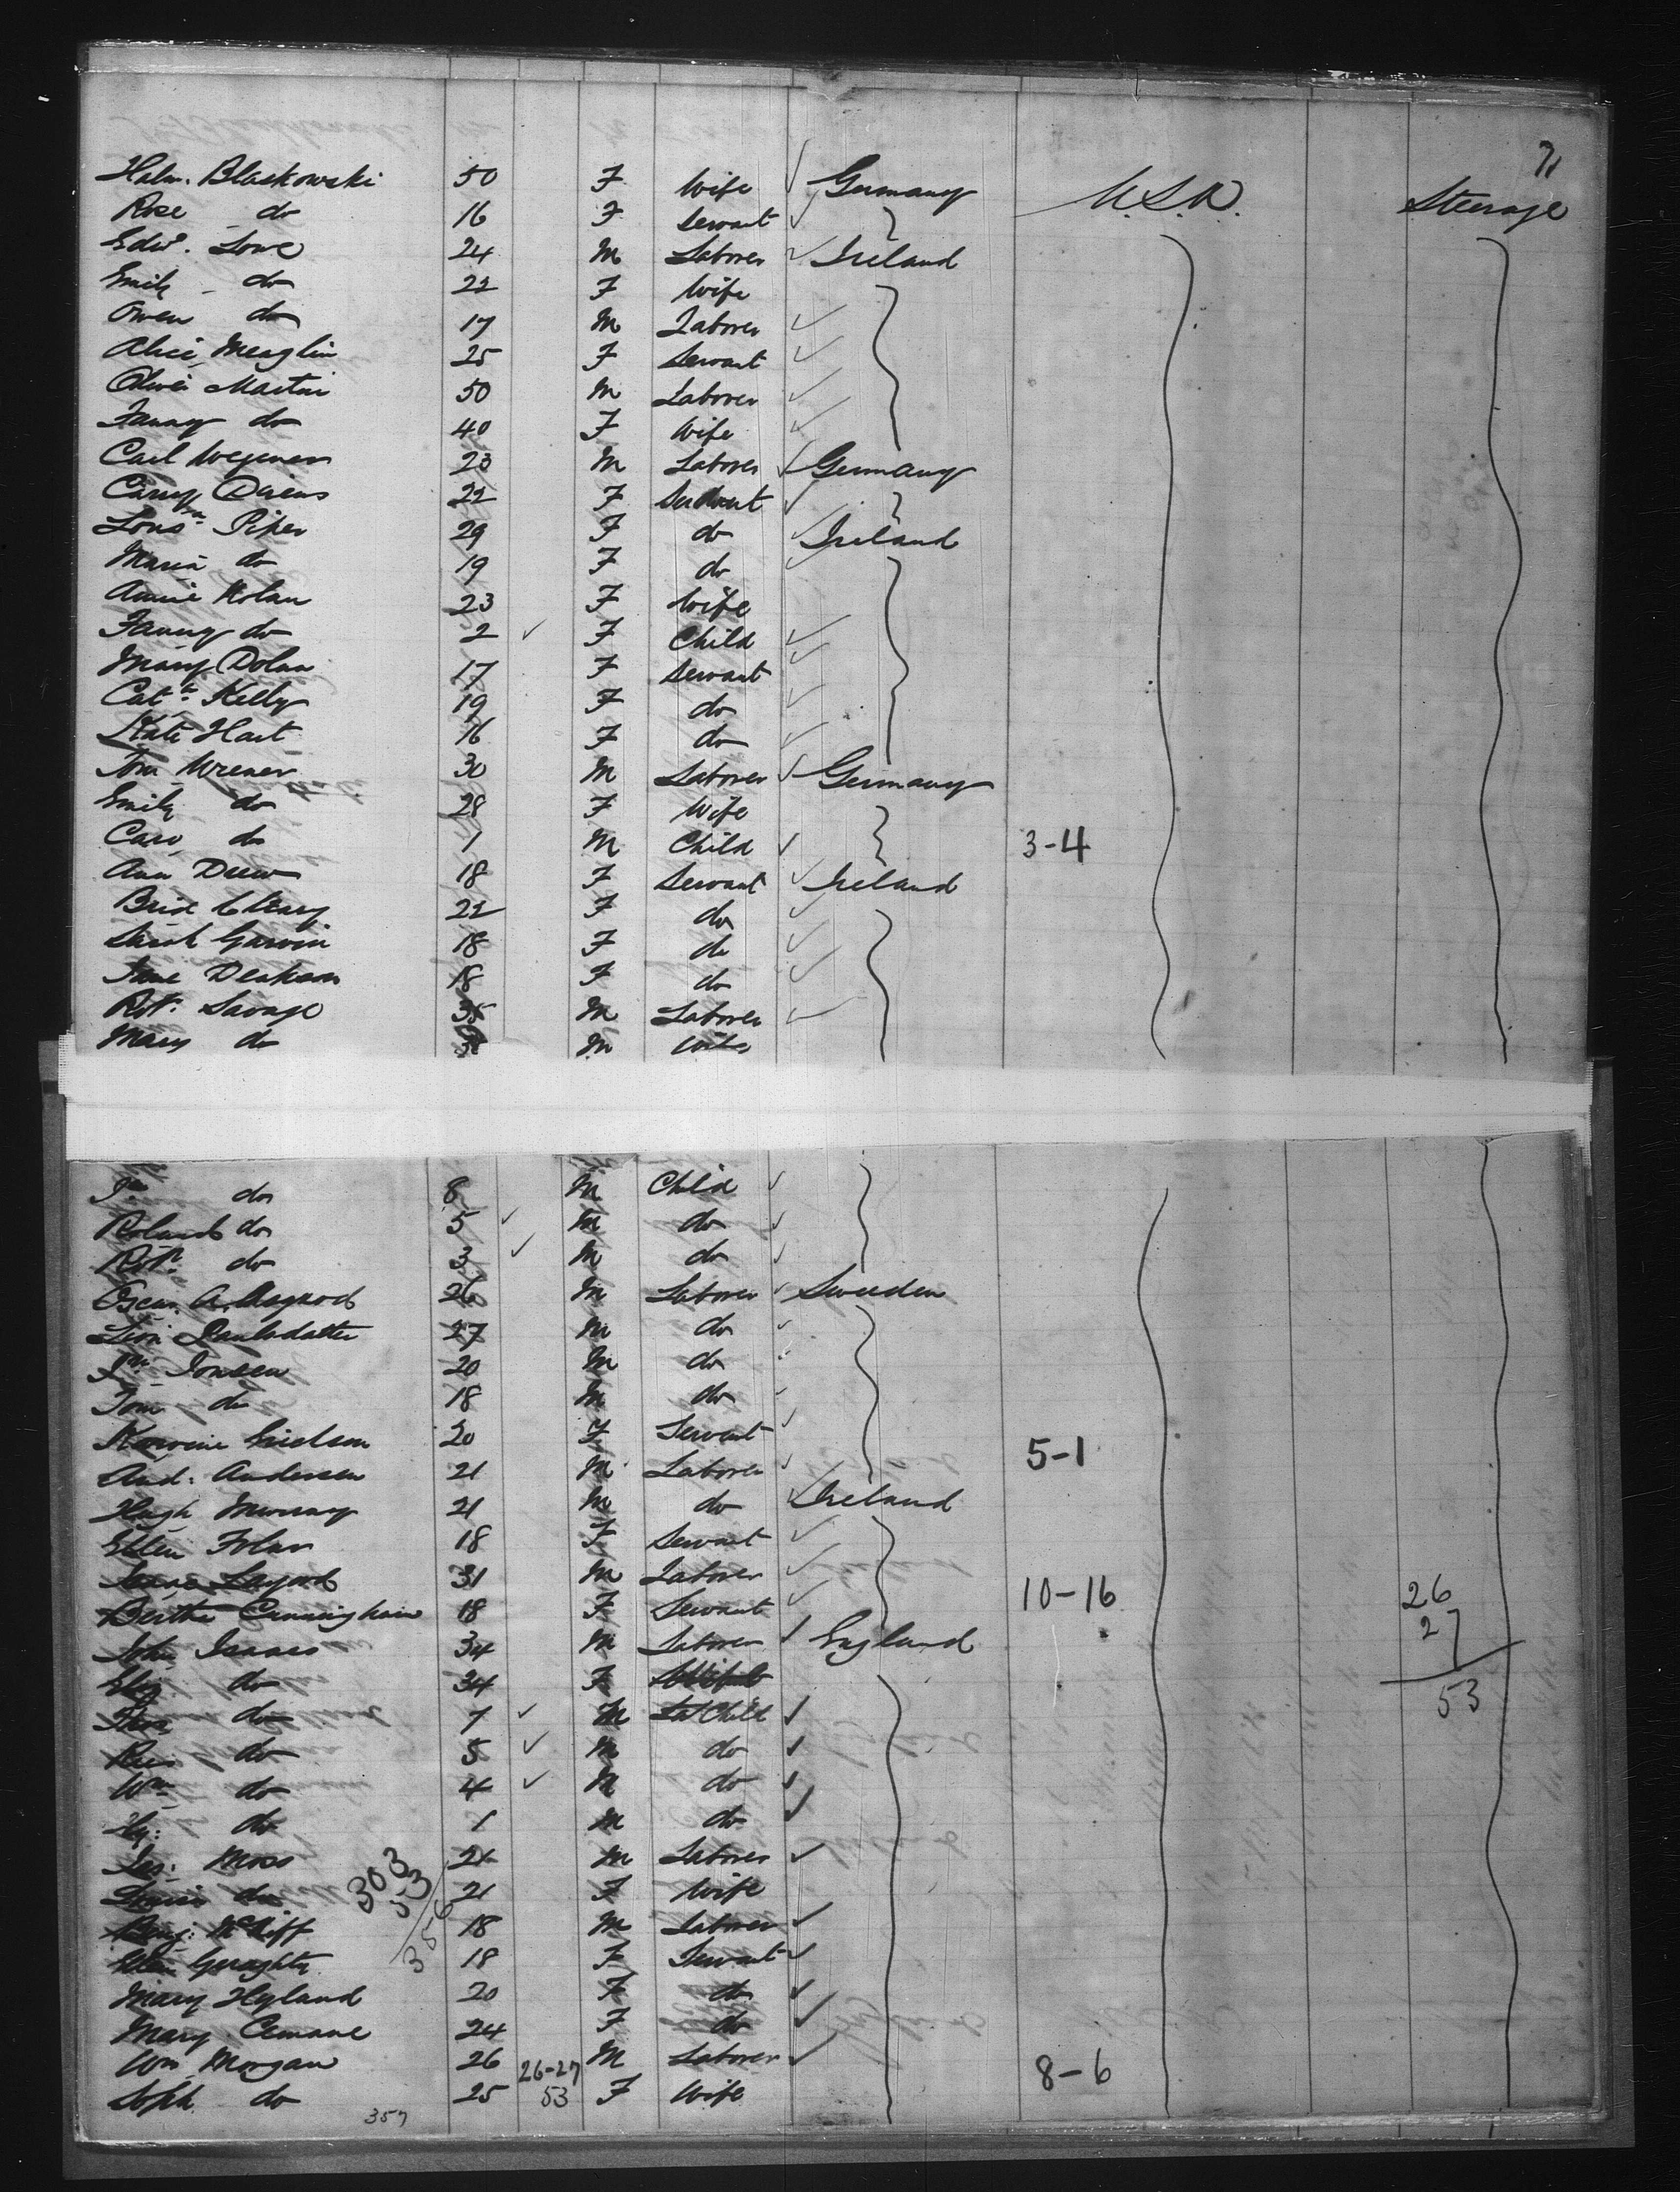 71
Halw. Blaskowski 50 F Wife Germany U.S.A. Steerage
Rose do 16 F Servant
Edwd. Lowe 24 M Laborer Ireland
Emily do 22 F Wife
Owen do 17 M Laborer
Alice 25 F Servant
Oliver Martin 50 M Laborer
Fanny do 40 F Wife
Carl Wegener 23 M Laborer Germany
22 F Servant
Piper 29 F do Ireland
Maria do 19 F do
Annie Nolan 23 F Wife
Fanny do 2 F Child
Mary Dolan 17 F Servant
Cath Kelly 19 F do
Kate Hart 16 F do
30 M Laborer Germany
Emily do 28 F Wife
do 1 M Child 3-4
Ann Drew 18 F Servant Ireland
Brid Cleary 22 F do
Sarah Garvin 18 F do
Jane 18 F do
Robt. Savage 35 M Laborer
Mary do M Wife
do 8 M Child
Roland do 5 M do
Robt. do 3 M do
Oscar A. 26 M Laborer Sweden
27 M do
Jonsen 20 M do
Tom do 18 M do
20 F Servant
And: Andersen 21 M Laborer 5-1
Hugh Murray 21 M do Ireland
Ellen 18 F Servant
31 M Laborer
Bertha Cunningham 18 F Servant 10-16 26
John Isaacs 34 M Laborer England 27
Eliz do 34 F 53
Thos do 7 M Child
do 5 M do
Wm do 4 M do
Hy: do 1 M do
Jas: Moss 303 21 M Laborer
Louisa do 53 21 F Wife
Benj: 356 18 M Laborer
Geraghty 18 F Servant
Mary Hyland 20 F do
Mary 24 F do
Wm Morgan 26 26-27 M Laborer 8-6
Soph do 25 53 F Wife
357